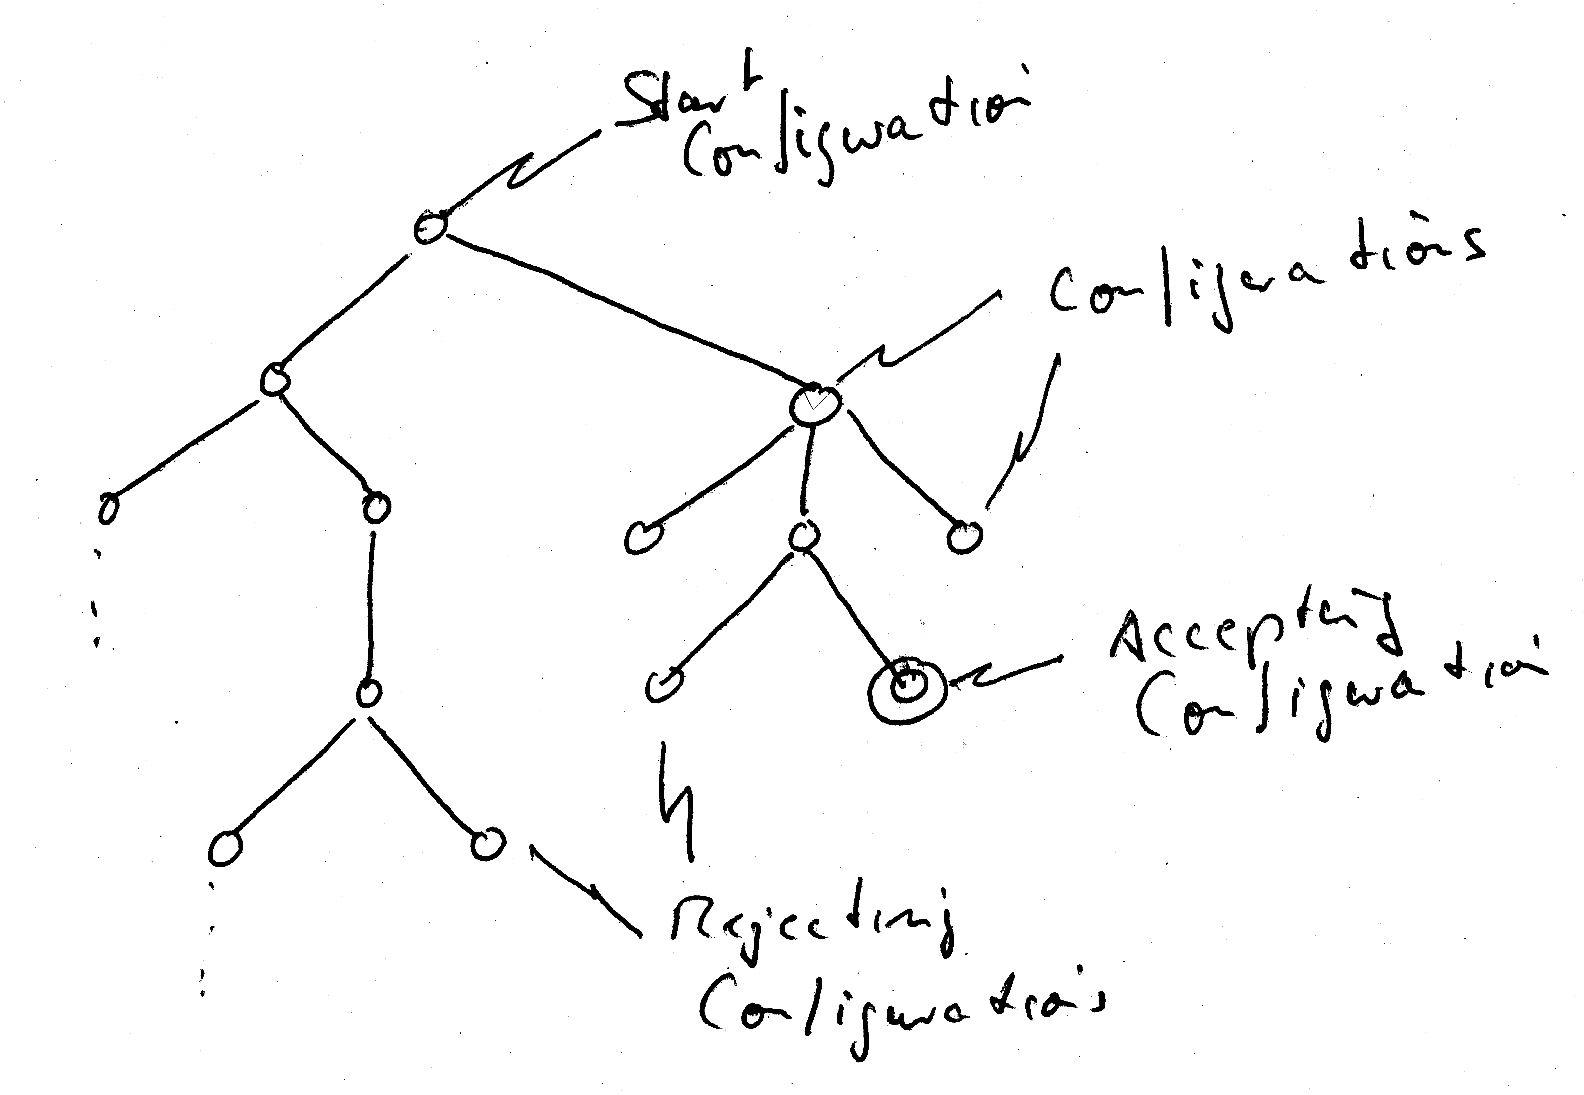 Start
Configuration
Configurations
Accepting
Configuration
Rejecting
Configurations